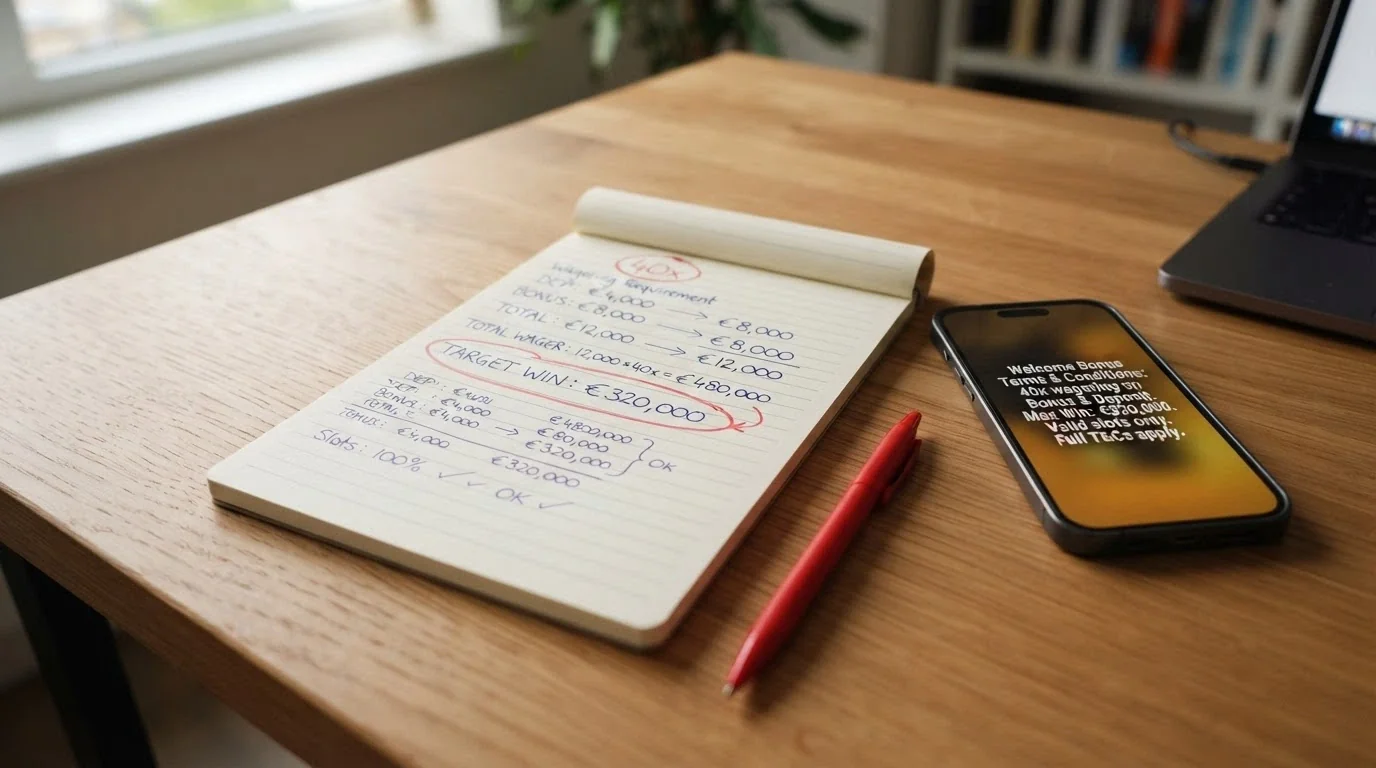 40x
Wagering Requirement
DEP: €4,000 → €8,000
BONUS: €8,000 → €8,000
TOTAL: €12,000 → €12,000
TOTAL WAGER: 12,000 × 40x = €480,000
TARGET WIN: €320,000
DEP:
€4,000 €4800,000
BONUS: €4,000 → €80,000
€320,000 } OK
€4,000 €320,000
Slots: 100% ✓ ✓ OK ✓
Welcome Bonus
Terms & Conditions:
40x wagering on
Bonus & Deposit.
Max Win: €320,000.
Valid slots only.
Full T&Cs apply.